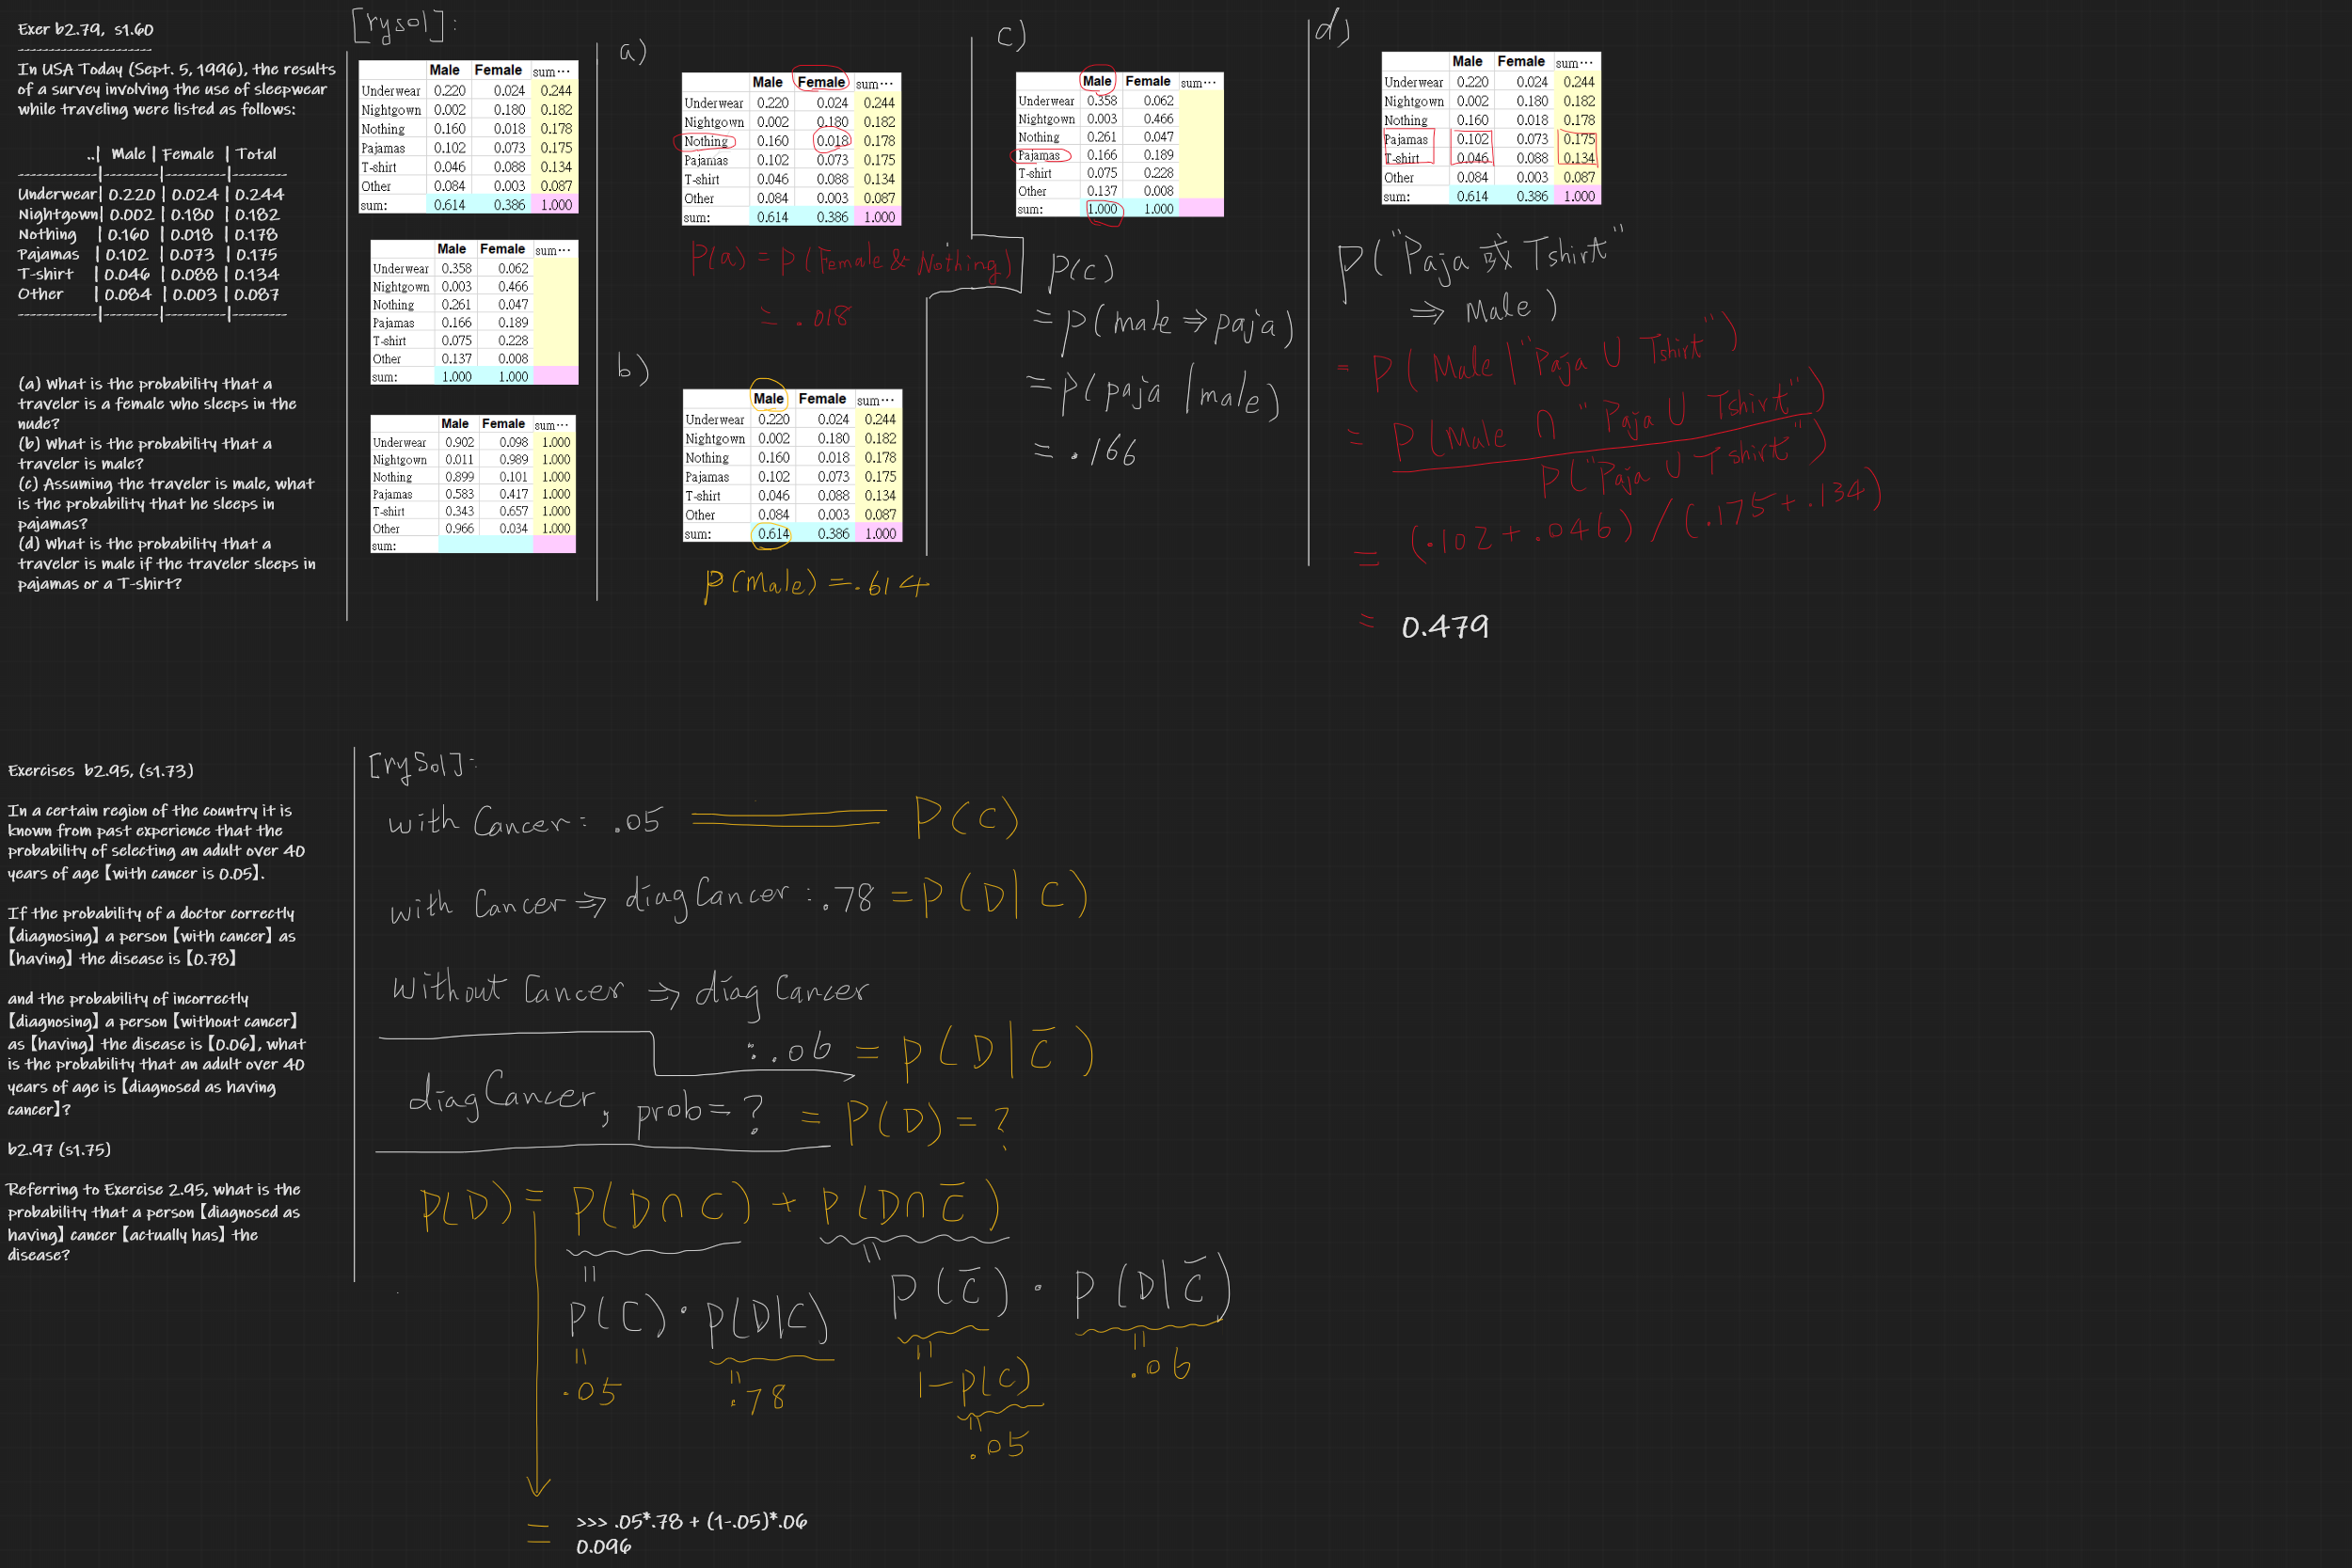 Exer b2.79, s1.60
----------------------
In USA Today (Sept. 5, 1996), the results
of a survey involving the use of sleepwear
while traveling were listed as follows:
..| Male | Female | Total
-------------|---------|----------|---------
Underwear| 0.220 | 0.024 | 0.244
Nightgown| 0.002 | 0.180 | 0.182
Nothing | 0.160 | 0.018 | 0.178
Pajamas | 0.102 | 0.073 | 0.175
T-shirt | 0.046 | 0.088 | 0.134
Other | 0.084 | 0.003 | 0.087
-------------|---------|----------|---------
(a) What is the probability that a
traveler is a female who sleeps in the
nude?
(b) What is the probability that a
traveler is male?
(c) Assuming the traveler is male, what
is the probability that he sleeps in
pajamas?
(d) What is the probability that a
traveler is male if the traveler sleeps in
pajamas or a T-shirt?
[rysol]:
Male Female sum...
Underwear 0.220 0.024 0.244
Nightgown 0.002 0.180 0.182
Nothing 0.160 0.018 0.178
Pajamas 0.102 0.073 0.175
T-shirt 0.046 0.088 0.134
Other 0.084 0.003 0.087
sum: 0.614 0.386 1.000
Male Female sum...
Underwear 0.358 0.062
Nightgown 0.003 0.466
Nothing 0.261 0.047
Pajamas 0.166 0.189
T-shirt 0.075 0.228
Other 0.137 0.008
sum: 1.000 1.000
Male Female sum...
Underwear 0.902 0.098 1.000
Nightgown 0.011 0.989 1.000
Nothing 0.899 0.101 1.000
Pajamas 0.583 0.417 1.000
T-shirt 0.343 0.657 1.000
Other 0.966 0.034 1.000
sum:
a)
Male Female sum...
Underwear 0.220 0.024 0.244
Nightgown 0.002 0.180 0.182
Nothing 0.160 0.018 0.178
Pajamas 0.102 0.073 0.175
T-shirt 0.046 0.088 0.134
Other 0.084 0.003 0.087
sum: 0.614 0.386 1.000
P(a) = P(Female & Nothing)
= .018
b)
Male Female sum...
Underwear 0.220 0.024 0.244
Nightgown 0.002 0.180 0.182
Nothing 0.160 0.018 0.178
Pajamas 0.102 0.073 0.175
T-shirt 0.046 0.088 0.134
Other 0.084 0.003 0.087
sum: 0.614 0.386 1.000
P(Male) = .614
c)
Male Female sum...
Underwear 0.358 0.062
Nightgown 0.003 0.466
Nothing 0.261 0.047
Pajamas 0.166 0.189
T-shirt 0.075 0.228
Other 0.137 0.008
sum: 1.000 1.000
P(c)
= P(male ⇒ paja)
= P(paja | male)
= .166
d)
Male Female sum...
Underwear 0.220 0.024 0.244
Nightgown 0.002 0.180 0.182
Nothing 0.160 0.018 0.178
Pajamas 0.102 0.073 0.175
T-shirt 0.046 0.088 0.134
Other 0.084 0.003 0.087
sum: 0.614 0.386 1.000
P("Paja 或 Tshirt"
⇒ Male)
= P(Male | "Paja ∪ Tshirt")
= P(Male ∩ "Paja ∪ Tshirt")
P("Paja ∪ Tshirt")
= (.102 + .046) / (.175 + .134)
= 0.479
Exercises b2.95, (s1.73)
In a certain region of the country it is
known from past experience that the
probability of selecting an adult over 40
years of age【with cancer is 0.05】.
If the probability of a doctor correctly
【diagnosing】a person【with cancer】as
【having】the disease is【0.78】
and the probability of incorrectly
【diagnosing】a person【without cancer】
as【having】the disease is【0.06】, what
is the probability that an adult over 40
years of age is【diagnosed as having
cancer】?
b2.97 (s1.75)
Referring to Exercise 2.95, what is the
probability that a person【diagnosed as
having】cancer【actually has】the
disease?
[rySol]:
with Cancer: .05 = P(C)
with Cancer ⇒ diagCancer: .78 = P(D|C)
without Cancer ⇒ diagCancer
: .06 = P(D|C̄)
diagCancer, prob=? = P(D) = ?
P(D) = P(D∩C) + P(D∩C̄)
= =
P(C) · P(D|C) P(C̄) · P(D|C̄)
= = = =
.05 .78 1-P(C) .06
=
.05
= >>> .05*.78 + (1-.05)*.06
0.096